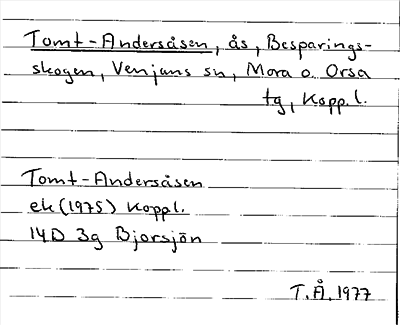 Tomt-Andersåsen, ås, Besparings-
skogen, Venjans sn, Mora o. Orsa
tg, Koppl.
Tomt-Andersåsen
ek (1975) Koppl.
14D 3g Bjorsjön
T.Å. 1977